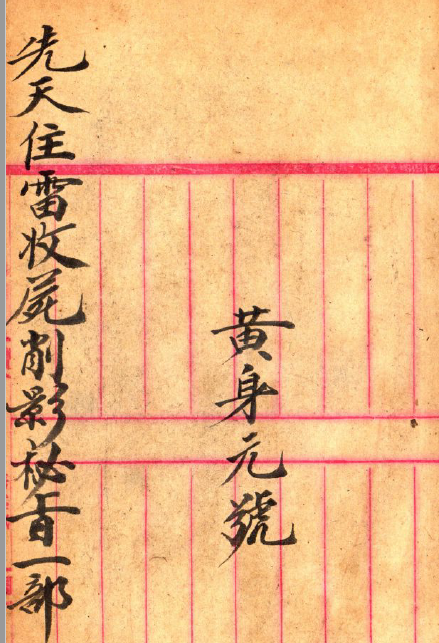 黃身元號
先天住雷收屍削影秘旨一部